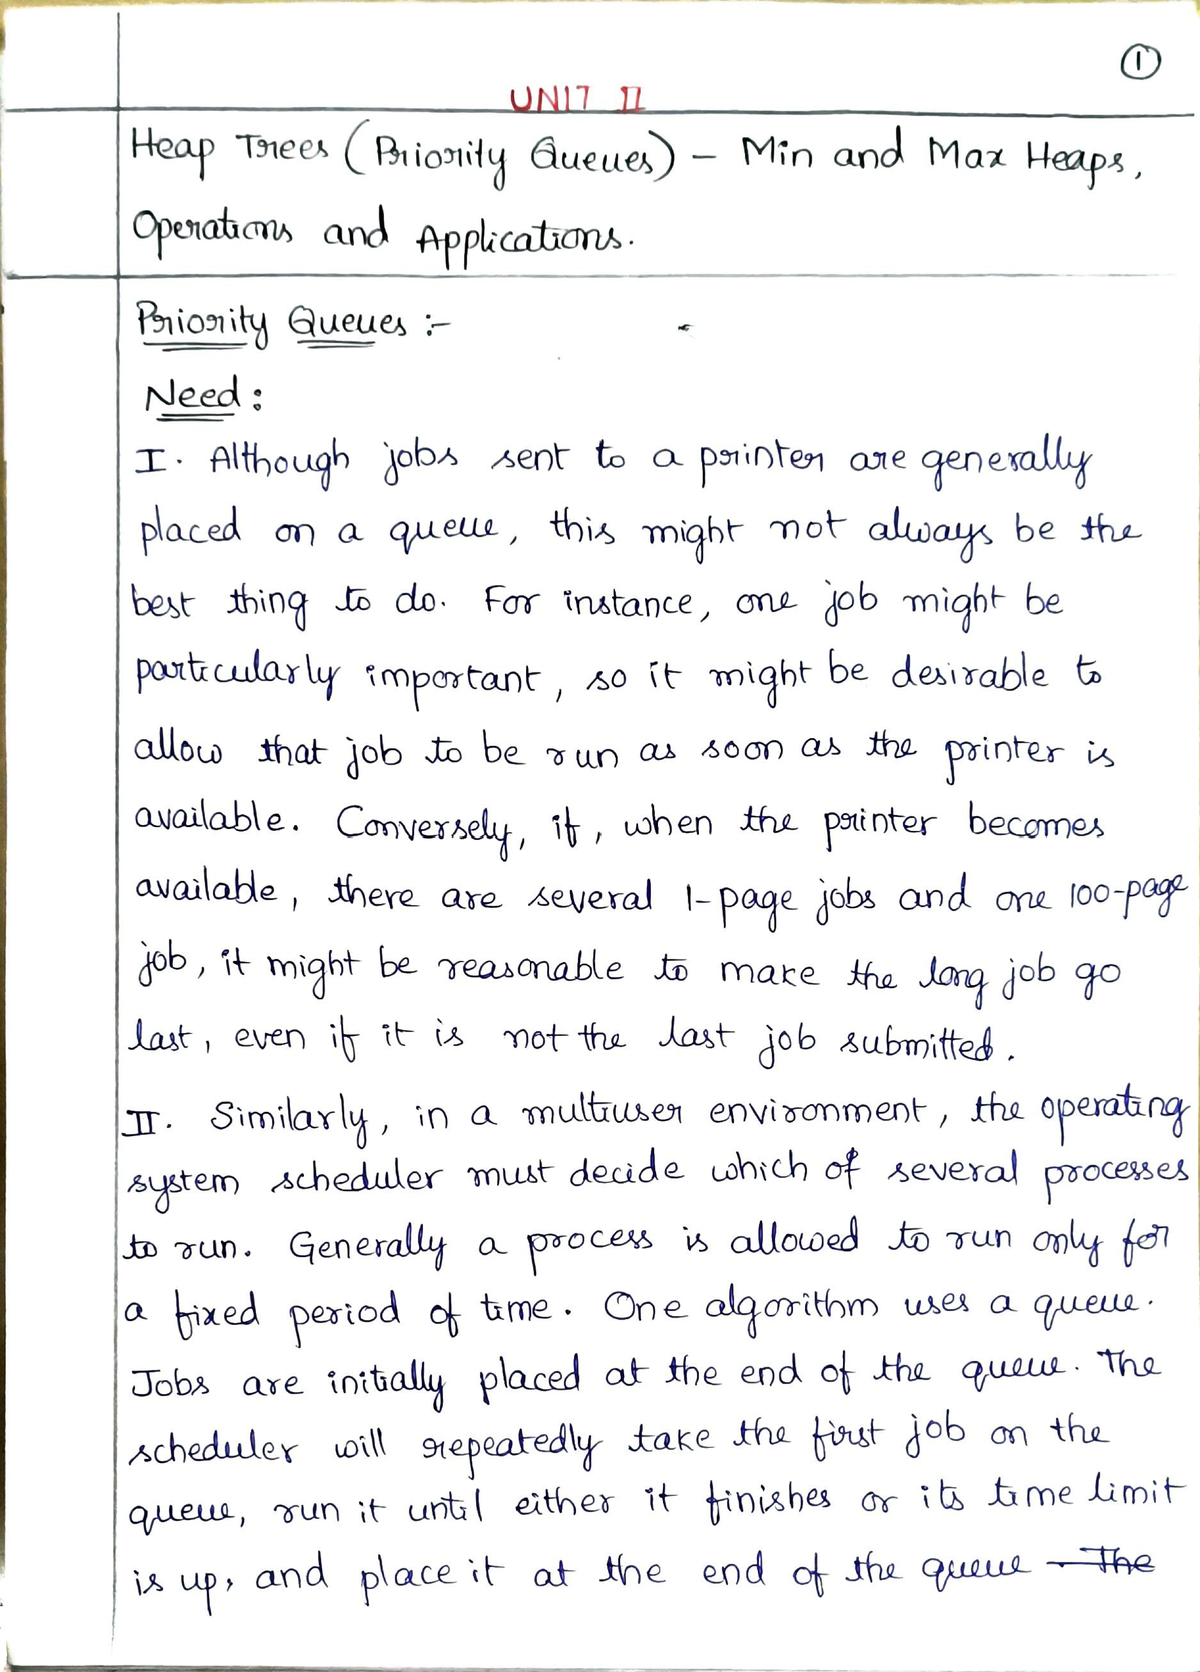 1
UNIT II
Heap Trees (Priority Queues) - Min and Max Heaps,
Operations and Applications.
Priority Queues :-
Need :
I. Although jobs sent to a printer are generally
placed on a queue, this might not always be the
best thing to do. For instance, one job might be
particularly important, so it might be desirable to
allow that job to be run as soon as the printer is
available. Conversely, if, when the printer becomes
available, there are several 1-page jobs and one 100-page
job, it might be reasonable to make the long job go
last, even if it is not the last job submitted.
II. Similarly, in a multiuser environment, the operating
system scheduler must decide which of several processes
to run. Generally a process is allowed to run only for
a fixed period of time. One algorithm uses a queue.
Jobs are initially placed at the end of the queue. The
scheduler will repeatedly take the first job on the
queue, run it until either it finishes or its time limit
is up, and place it at the end of the queue The